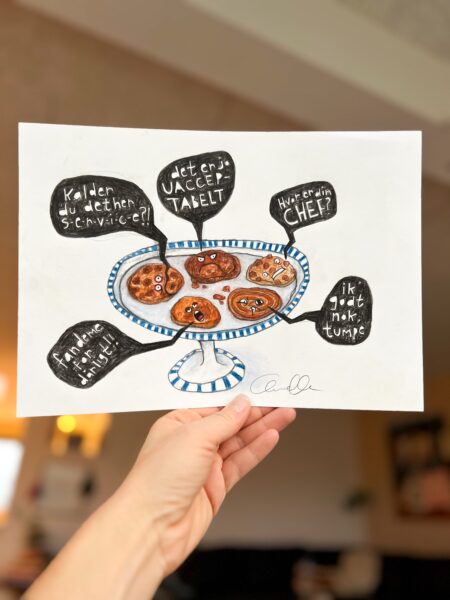 Kalder
du dethen'
s-e-r-v-i-c-e?!
det er jo
UACCEP-
TABELT
Hvor er din
CHEF?
fandeme
for
dårligt!!
ik'
godt
nok,
tumpe